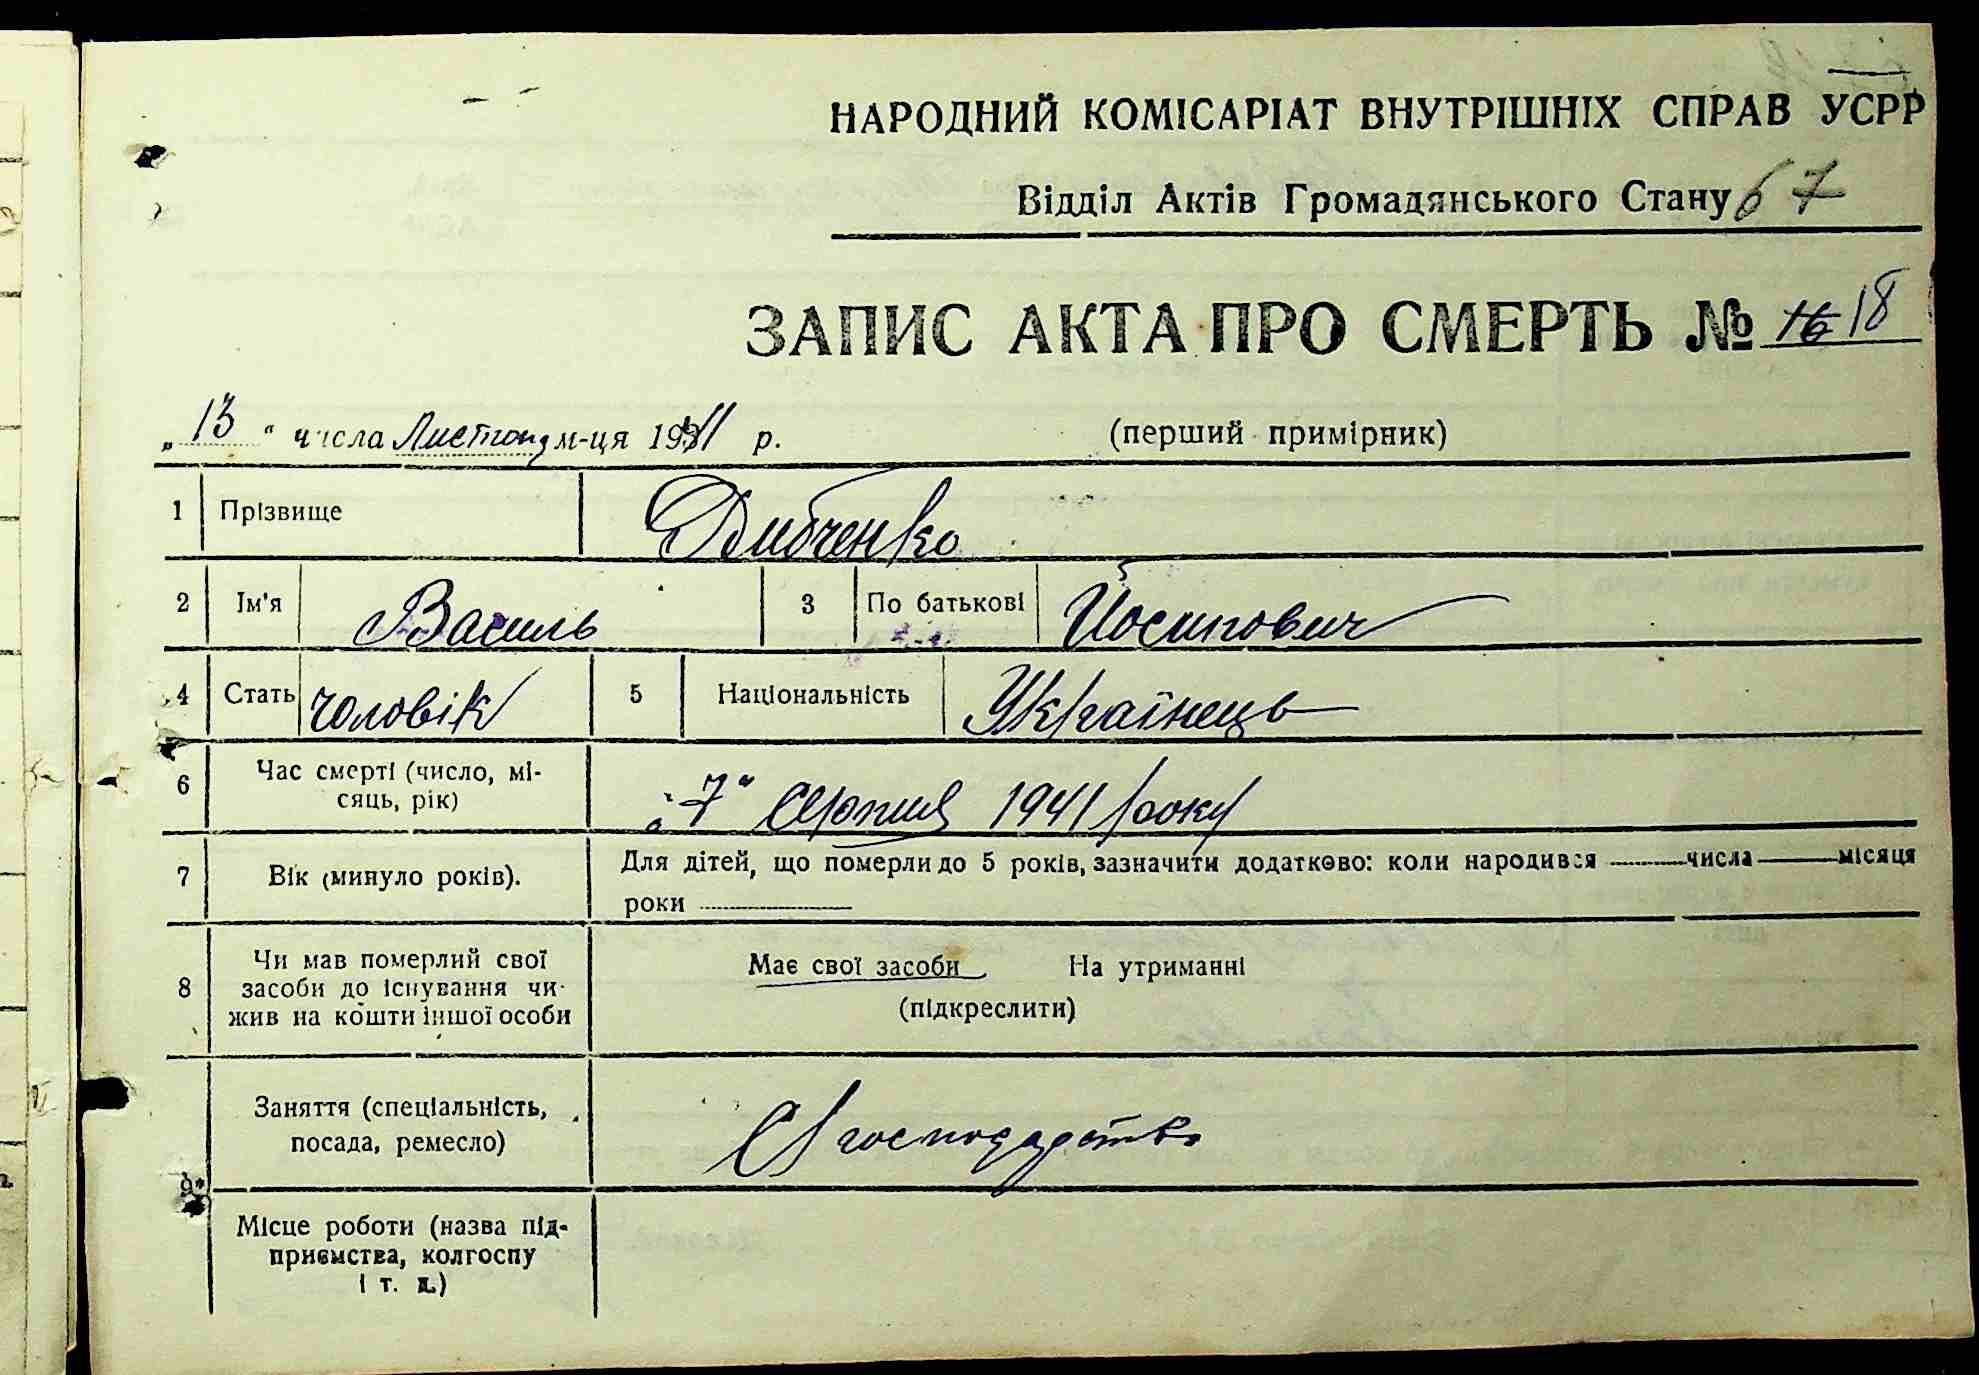 НАРОДНИЙ КОМІСАРІАТ ВНУТРІШНІХ СПРАВ УСРР
Відділ Актів Громадянського Стану 67
ЗАПИС АКТА ПРО СМЕРТЬ № 16 18
„13“ числа Листопад м-ця 1941 р. (перший примірник)
1 Прізвище Дибченко
2 Ім'я Василь 3 По батькові Йосипович
4 Стать чоловік 5 Національність Українець
6 Час смерті (число, мі-
сяць, рік) „7“ Серпня 1941 року
7 Вік (минуло років). Для дітей, що померли до 5 років, зазначити додатково: коли народився числа місяця
роки
8 Чи мав померлий свої
засоби до існування чи
жив на кошти іншої особи
Має свої засоби На утриманні
(підкреслити)
9* Заняття (спеціальність,
посада, ремесло) С/господарство
Місце роботи (назва під-
приємства, колгоспу
і т. д.)